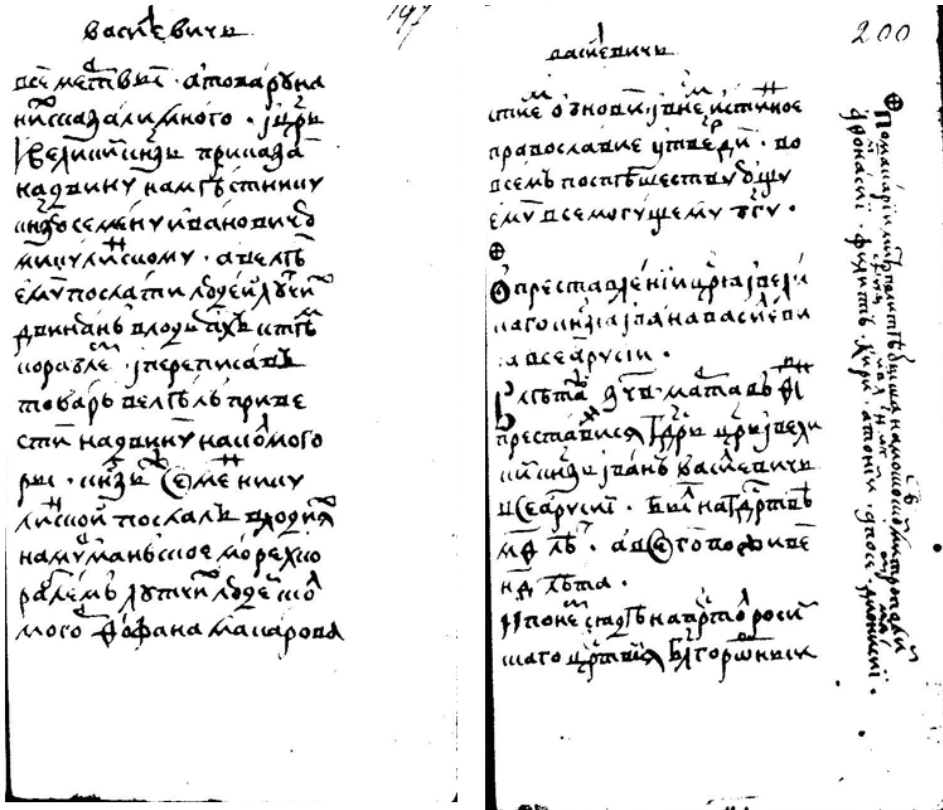 васи́левичь
197
а товару на
ни сказали много · і цр҃ь
і великиі кн҃зь приказа
на двину намѣстнику
кн҃зю семену ивановичю
микулинскому · а велѣ
ему послати людеи лутчи
двинянъ в лодьяхъ к тѣм
корабле · і переписавъ
товаръ велѣлъ приве
сти на двину на колмого
ры · кн҃зь семе мику
линскои послалъ в лодиях
на мурманьское море х ко
раблемъ лутчих людеи кол
мого фофана макарова
200
василевичь
стие обнови, і в не истинное
православие утверди · во
всемъ поспѣшествующу
ему всемогущему бг҃у ·
О преставлениі цр҃я і вели
каго кн҃зя івана василеви
ча всеа русиі ·
В лѣта зч҃в · марта въ ѳ҃і
преставися гд҃рь цр҃ь і вели
киі кн҃зь іванъ василевичь
всеа русиі · был на гд҃рствѣ
м҃ѳ лѣ · а всего
н҃д лѣта ·
И по не сядѣ на цр҃ст роси
скаго цр҃ствия бл҃городныи
По макарии митрополитѣ быша на москвѣ митрополи
афонасиі · филипъ · кири · антониі · дионисиі ·